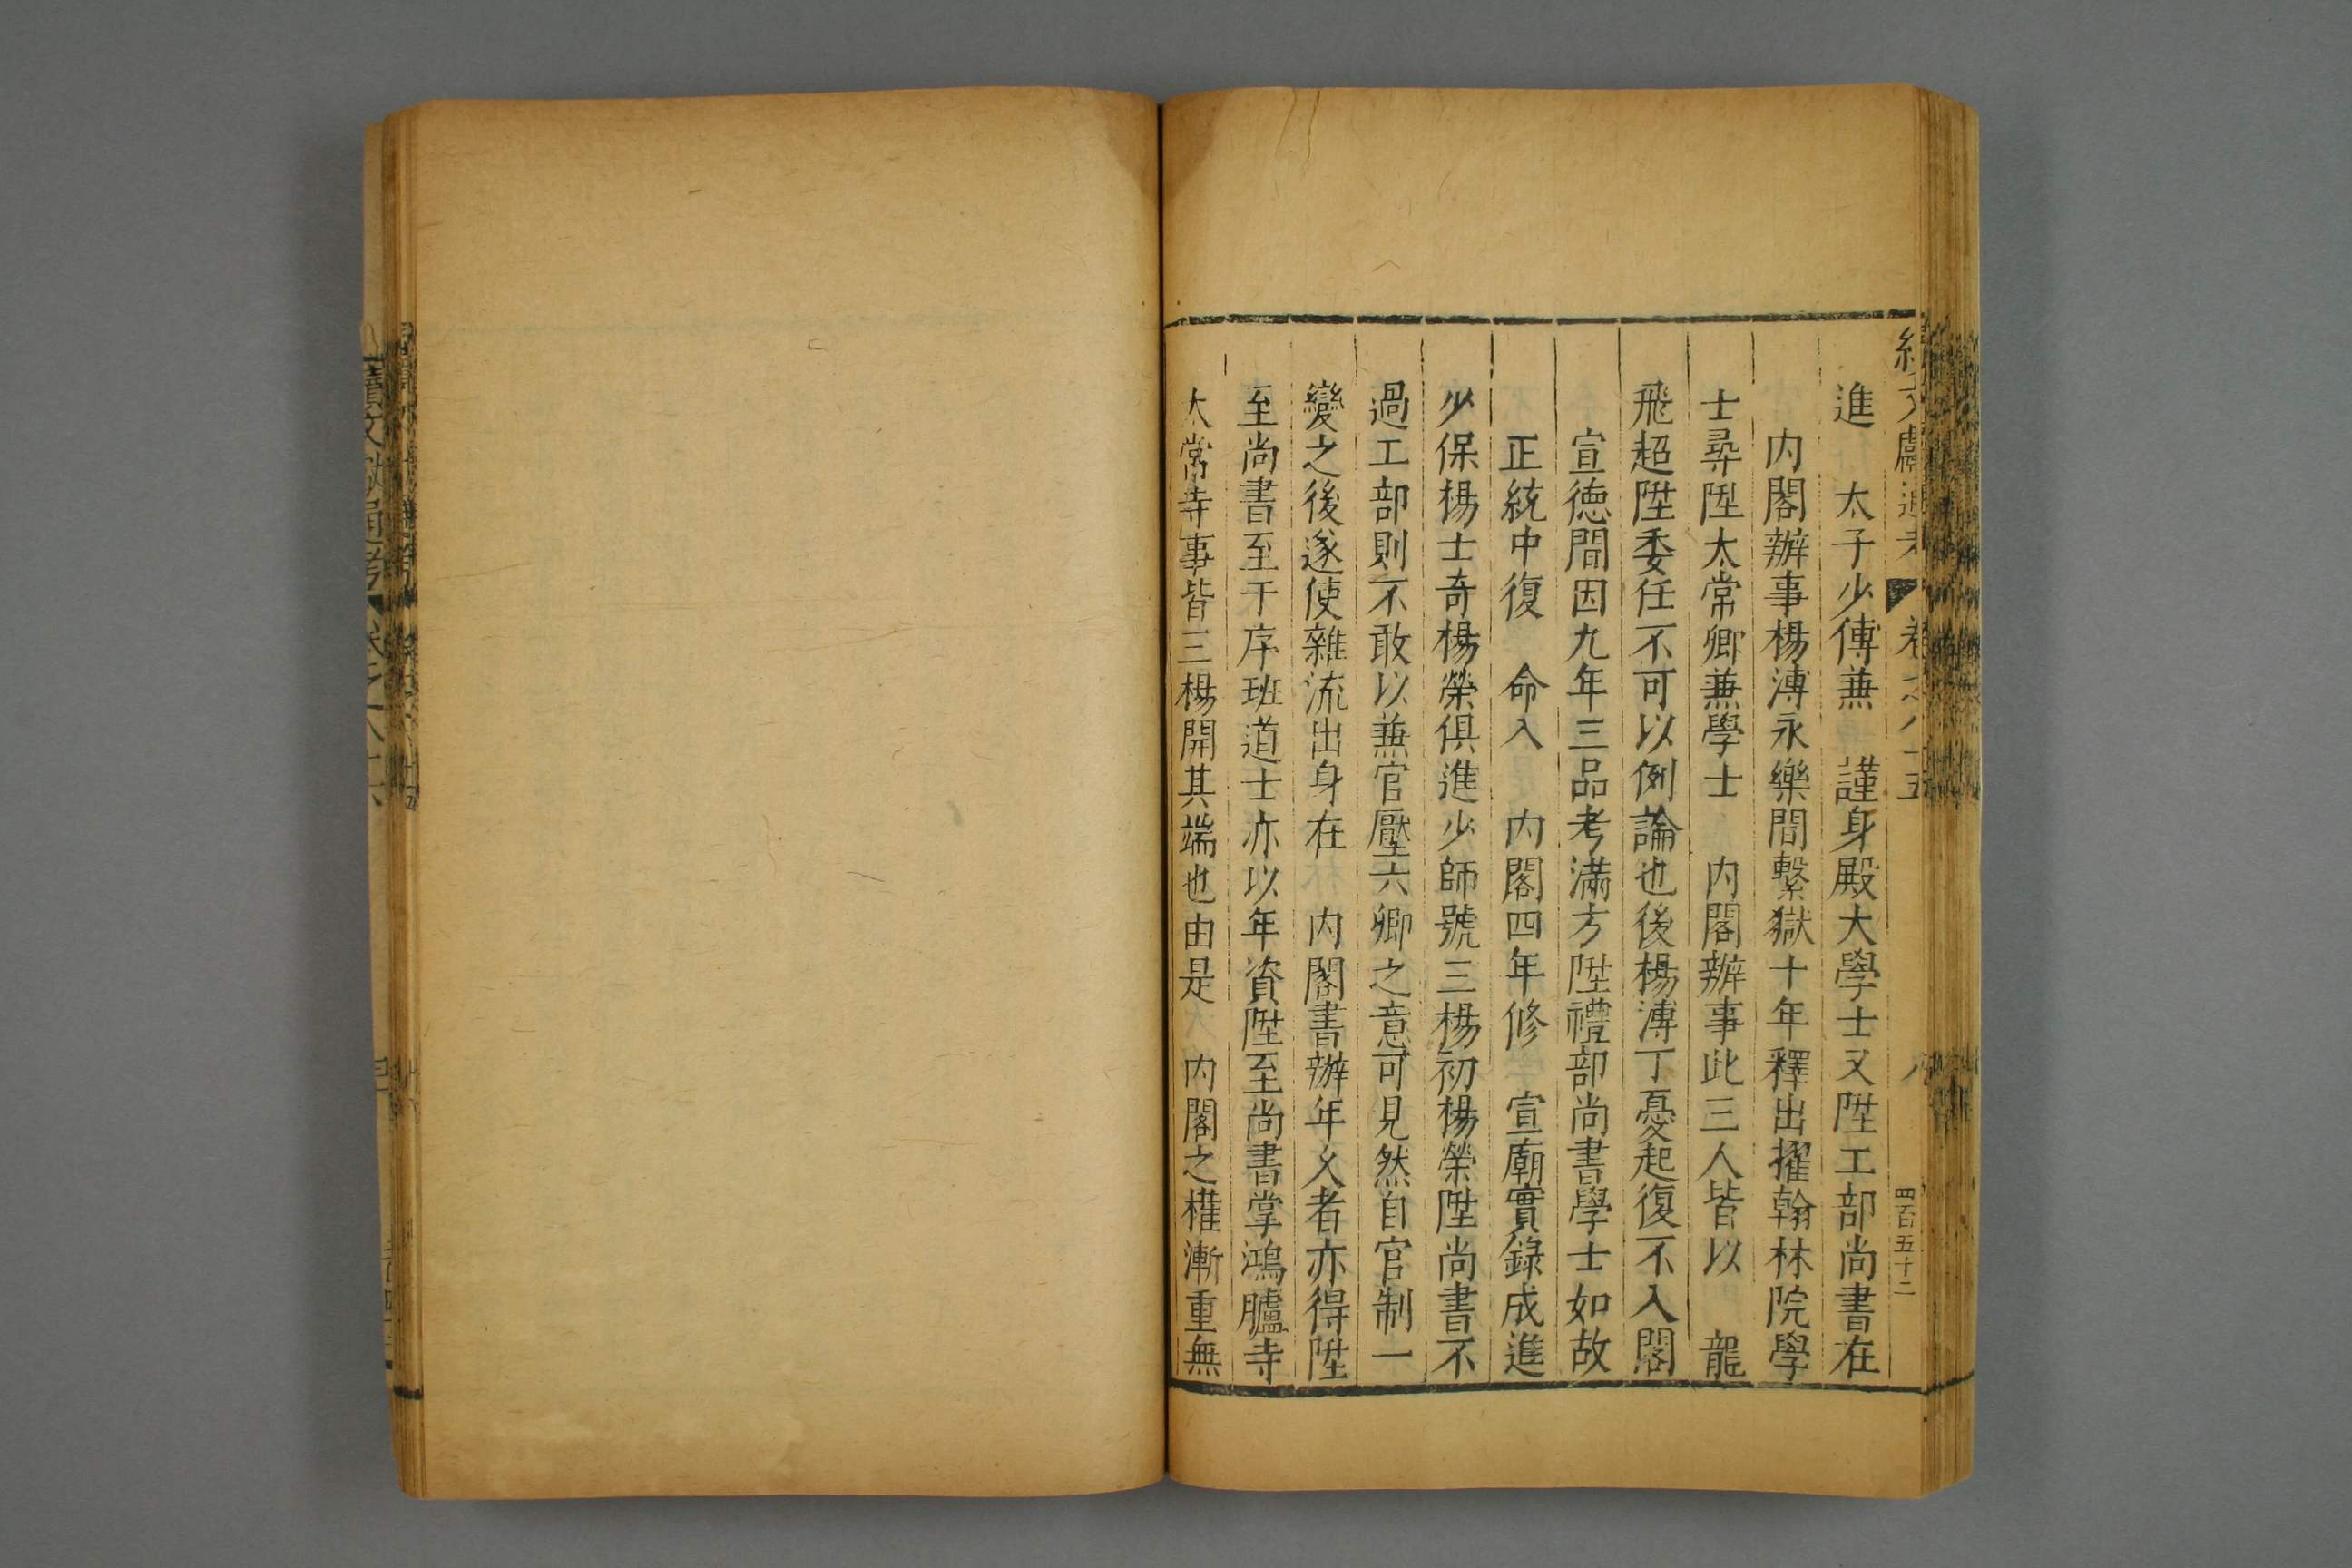 續文獻通考 卷之八十五 八 四百五十二
進 太子少傅兼 謹身殿大學士又陞工部尚書在
內閣辦事楊溥永樂間繫獄十年釋出擢翰林院學
士尋陞太常卿兼學士 內閣辦事此三人皆以 龍
飛超陞委任不可以例論也後楊溥丁憂起復不入閣
宣德間因九年三品考滿方陞禮部尚書學士如故
正統中復 命入 內閣四年修 宣廟實錄成進
少保楊士奇楊榮俱進少師號三楊初楊榮陞尚書不
過工部則不敢以兼官壓六卿之意可見然自官制一
變之後遂使雜流出身在 內閣書辦年久者亦得陞
至尚書至于序班道士亦以年資陞至尚書掌鴻臚寺
太常寺事皆三楊開其端也由是 內閣之權漸重無
續文獻通考 卷之八十六